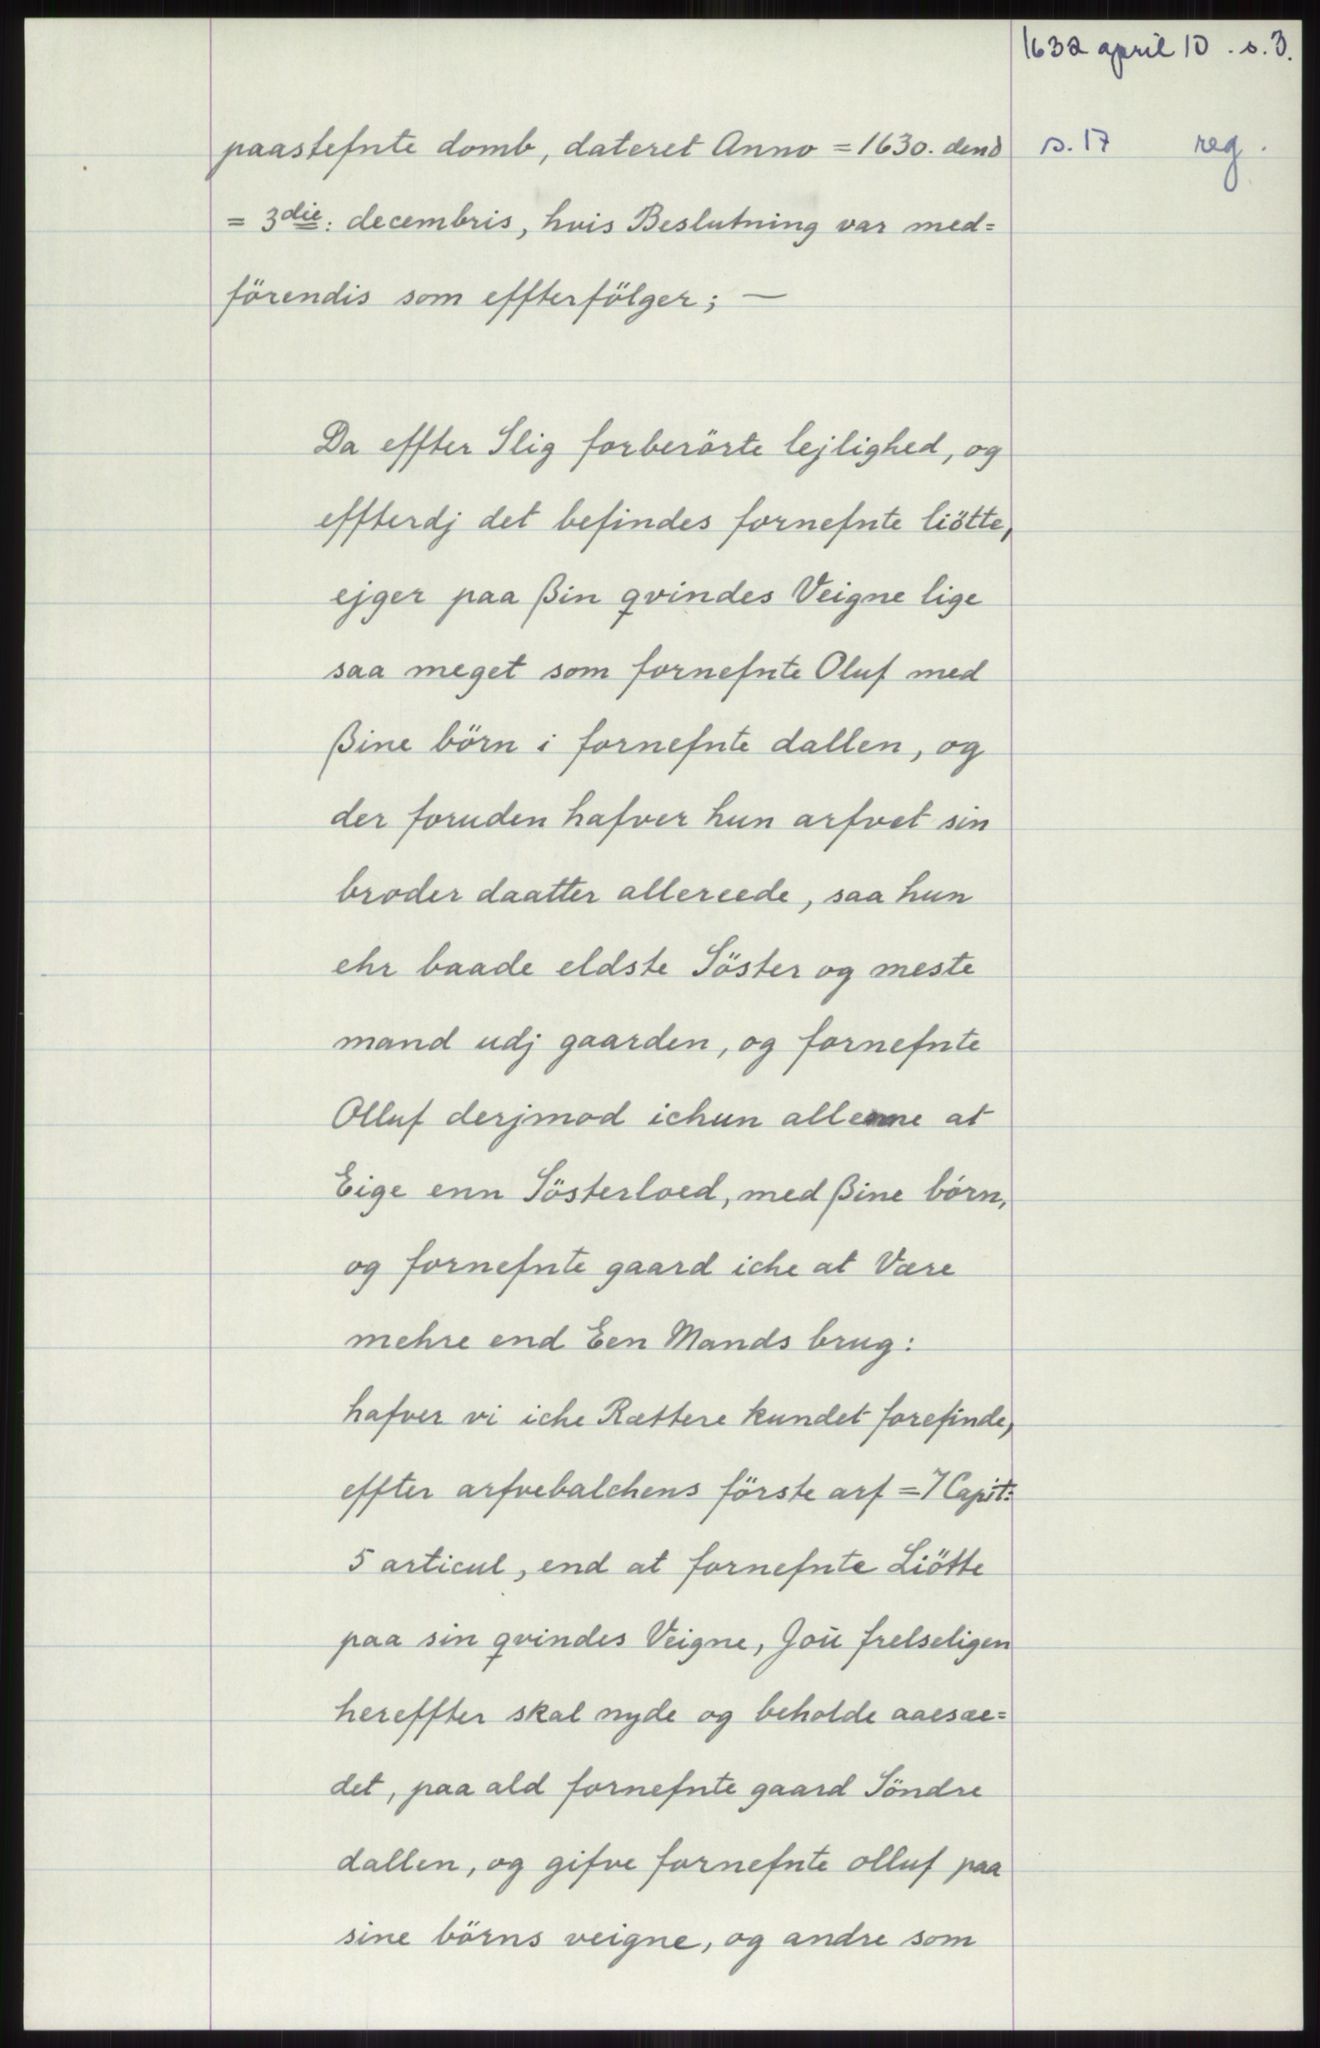 1632 april 10 . s. 3.
s. 17 reg .
paastefnte domb, dateret Anno = 1630. dend
= 3die: decembris, hvis Beslutning var med=
förendis som effterfölger; —
Da effter Slig forberörte lejlighed, og
effterdj det befindes fornefnte liötte,
ejger paa ßin qvindes Veigne lige
saa meget som fornefnte Oluf med
ßine börn i fornefnte dallen, og
der foruden hafver hun arfvet sin
broder daatter allereede, saa hun
ehr baade eldste Söster og meste
mand udj gaarden, og fornefnte
Olluf derjmod ichun allene at
Eige enn Sösterloed, med ßine börn,
og fornefnte gaard iche at Være
mehre end Een Mands brug:
hafver vi iche Rættere kundet forefinde,
effter arfvebalchens förste arf = 7 Capit:
5 articul, end at fornefnte Liötte
paa sin qvindes Veigne, Joŭ frelseligen
hereffter skal nyde og beholde aaesæ=
det, paa ald fornefnte gaard Söndre
dallen, og gifve fornefnte olluf paa
sine börns veigne, og andre som